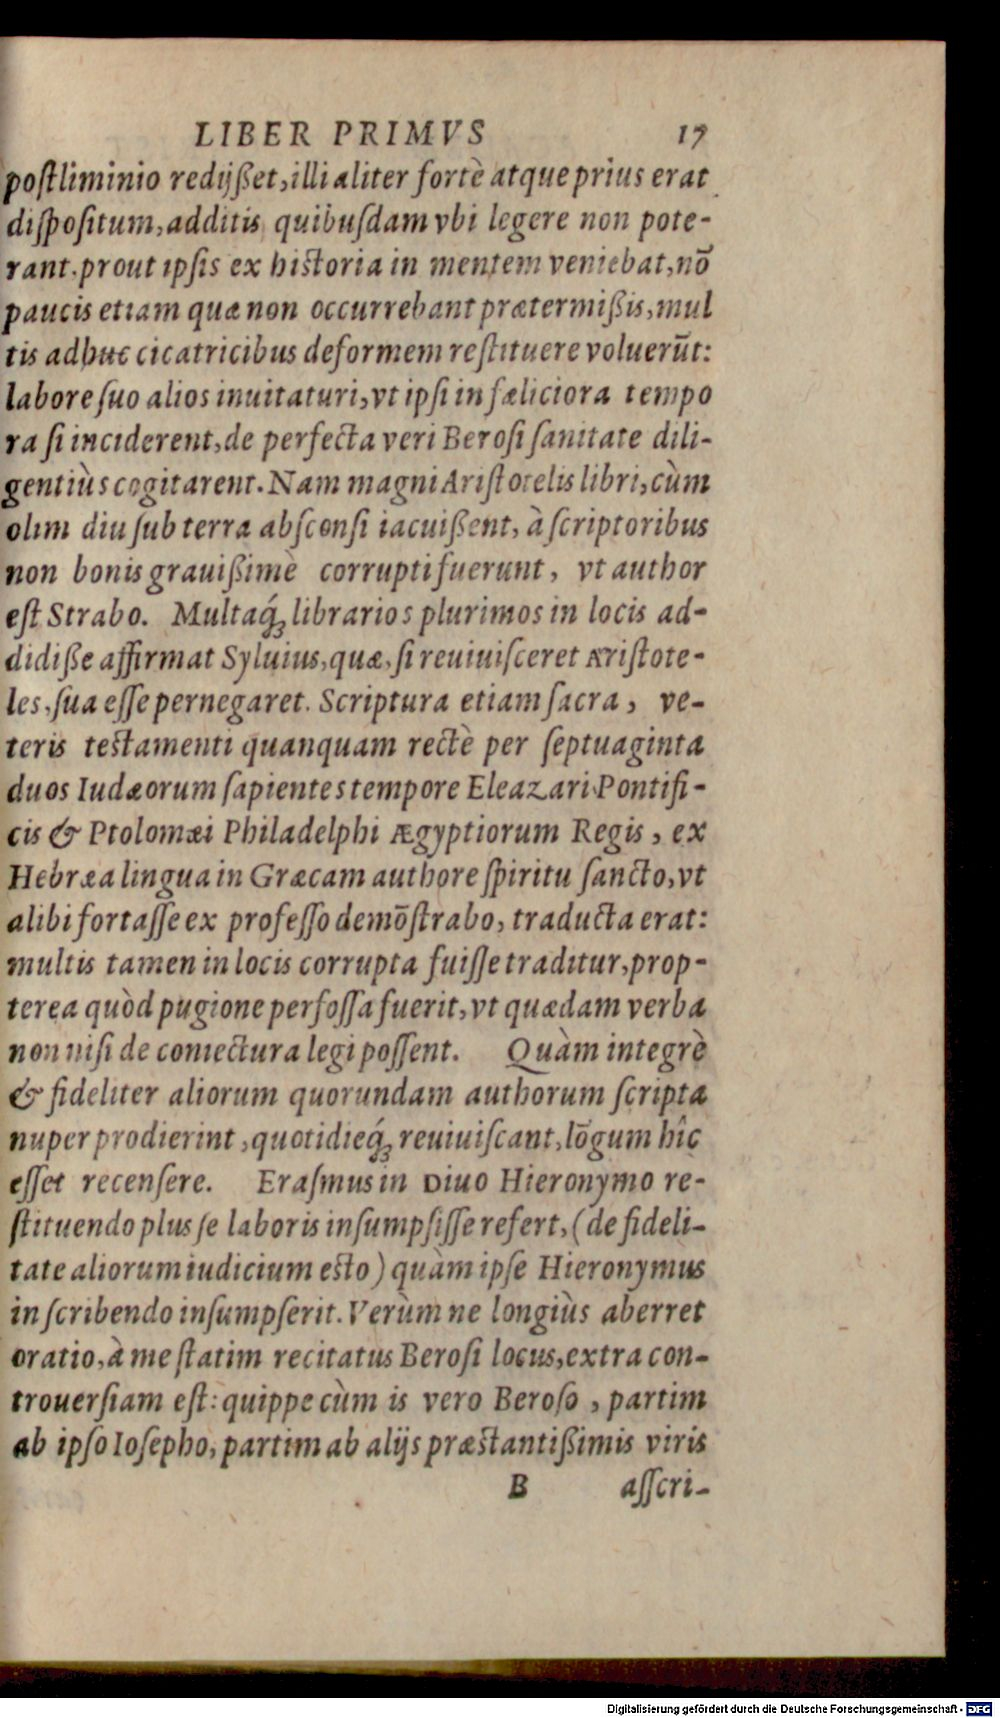 LIBER PRIMVS 17
poſtliminio redijßet, illi aliter fortè atque prius erat
diſpoſitum, additis quibuſdam vbi legere non pote-
rant. prout ipſis ex hiſtoria in mentem veniebat, nō
paucis etiam quæ non occurrebant prætermißis, mul
tis adhuc cicatricibus deformem reſtituere voluerūt:
labore ſuo alios inuitaturi, vt ipſi in fæliciora tempo
ra ſi inciderent, de perfecta veri Beroſi ſanitate dili-
gentiùs cogitarent. Nam magni Ariſtotelis libri, cùm
olim diu ſub terra abſconſi iacuißent, à ſcriptoribus
non bonis grauißimè corrupti fuerunt, vt author
eſt Strabo. Multaq́ꝫ librarios plurimos in locis ad-
didiße affirmat Syluius, quæ, ſi reuiuiſceret Ariſtote-
les, ſua eſſe pernegaret. Scriptura etiam ſacra, ve-
teris teſtamenti quanquam rectè per ſeptuaginta
duos Iudæorum ſapientes tempore Eleazari Pontifi-
cis & Ptolomæi Philadelphi Ægyptiorum Regis, ex
Hebræa lingua in Græcam authore ſpiritu ſancto, vt
alibi fortaſſe ex profeſſo demōſtrabo, traducta erat:
multis tamen in locis corrupta fuiſſe traditur, prop-
terea quòd pugione perfoſſa fuerit, vt quædam verba
non niſi de coniectura legi poſſent. Quàm integrè
& fideliter aliorum quorundam authorum ſcripta
nuper prodierint, quotidieq́ꝫ reuiuiſcant, lōgum hîc
eſſet recenſere. Eraſmus in Diuo Hieronymo re-
ſtituendo plus ſe laboris inſumpſiſſe refert, (de fideli-
tate aliorum iudicium eſto) quàm ipſe Hieronymus
in ſcribendo inſumpſerit. Verùm ne longiùs aberret
oratio, à me ſtatim recitatus Beroſi locus, extra con-
trouerſiam eſt: quippe cùm is vero Beroſo, partim
ab ipſo Ioſepho, partim ab alijs præſtantißimis viris
B aſſcri-
Digitalisierung gefördert durch die Deutsche Forschungsgemeinschaft - DFG